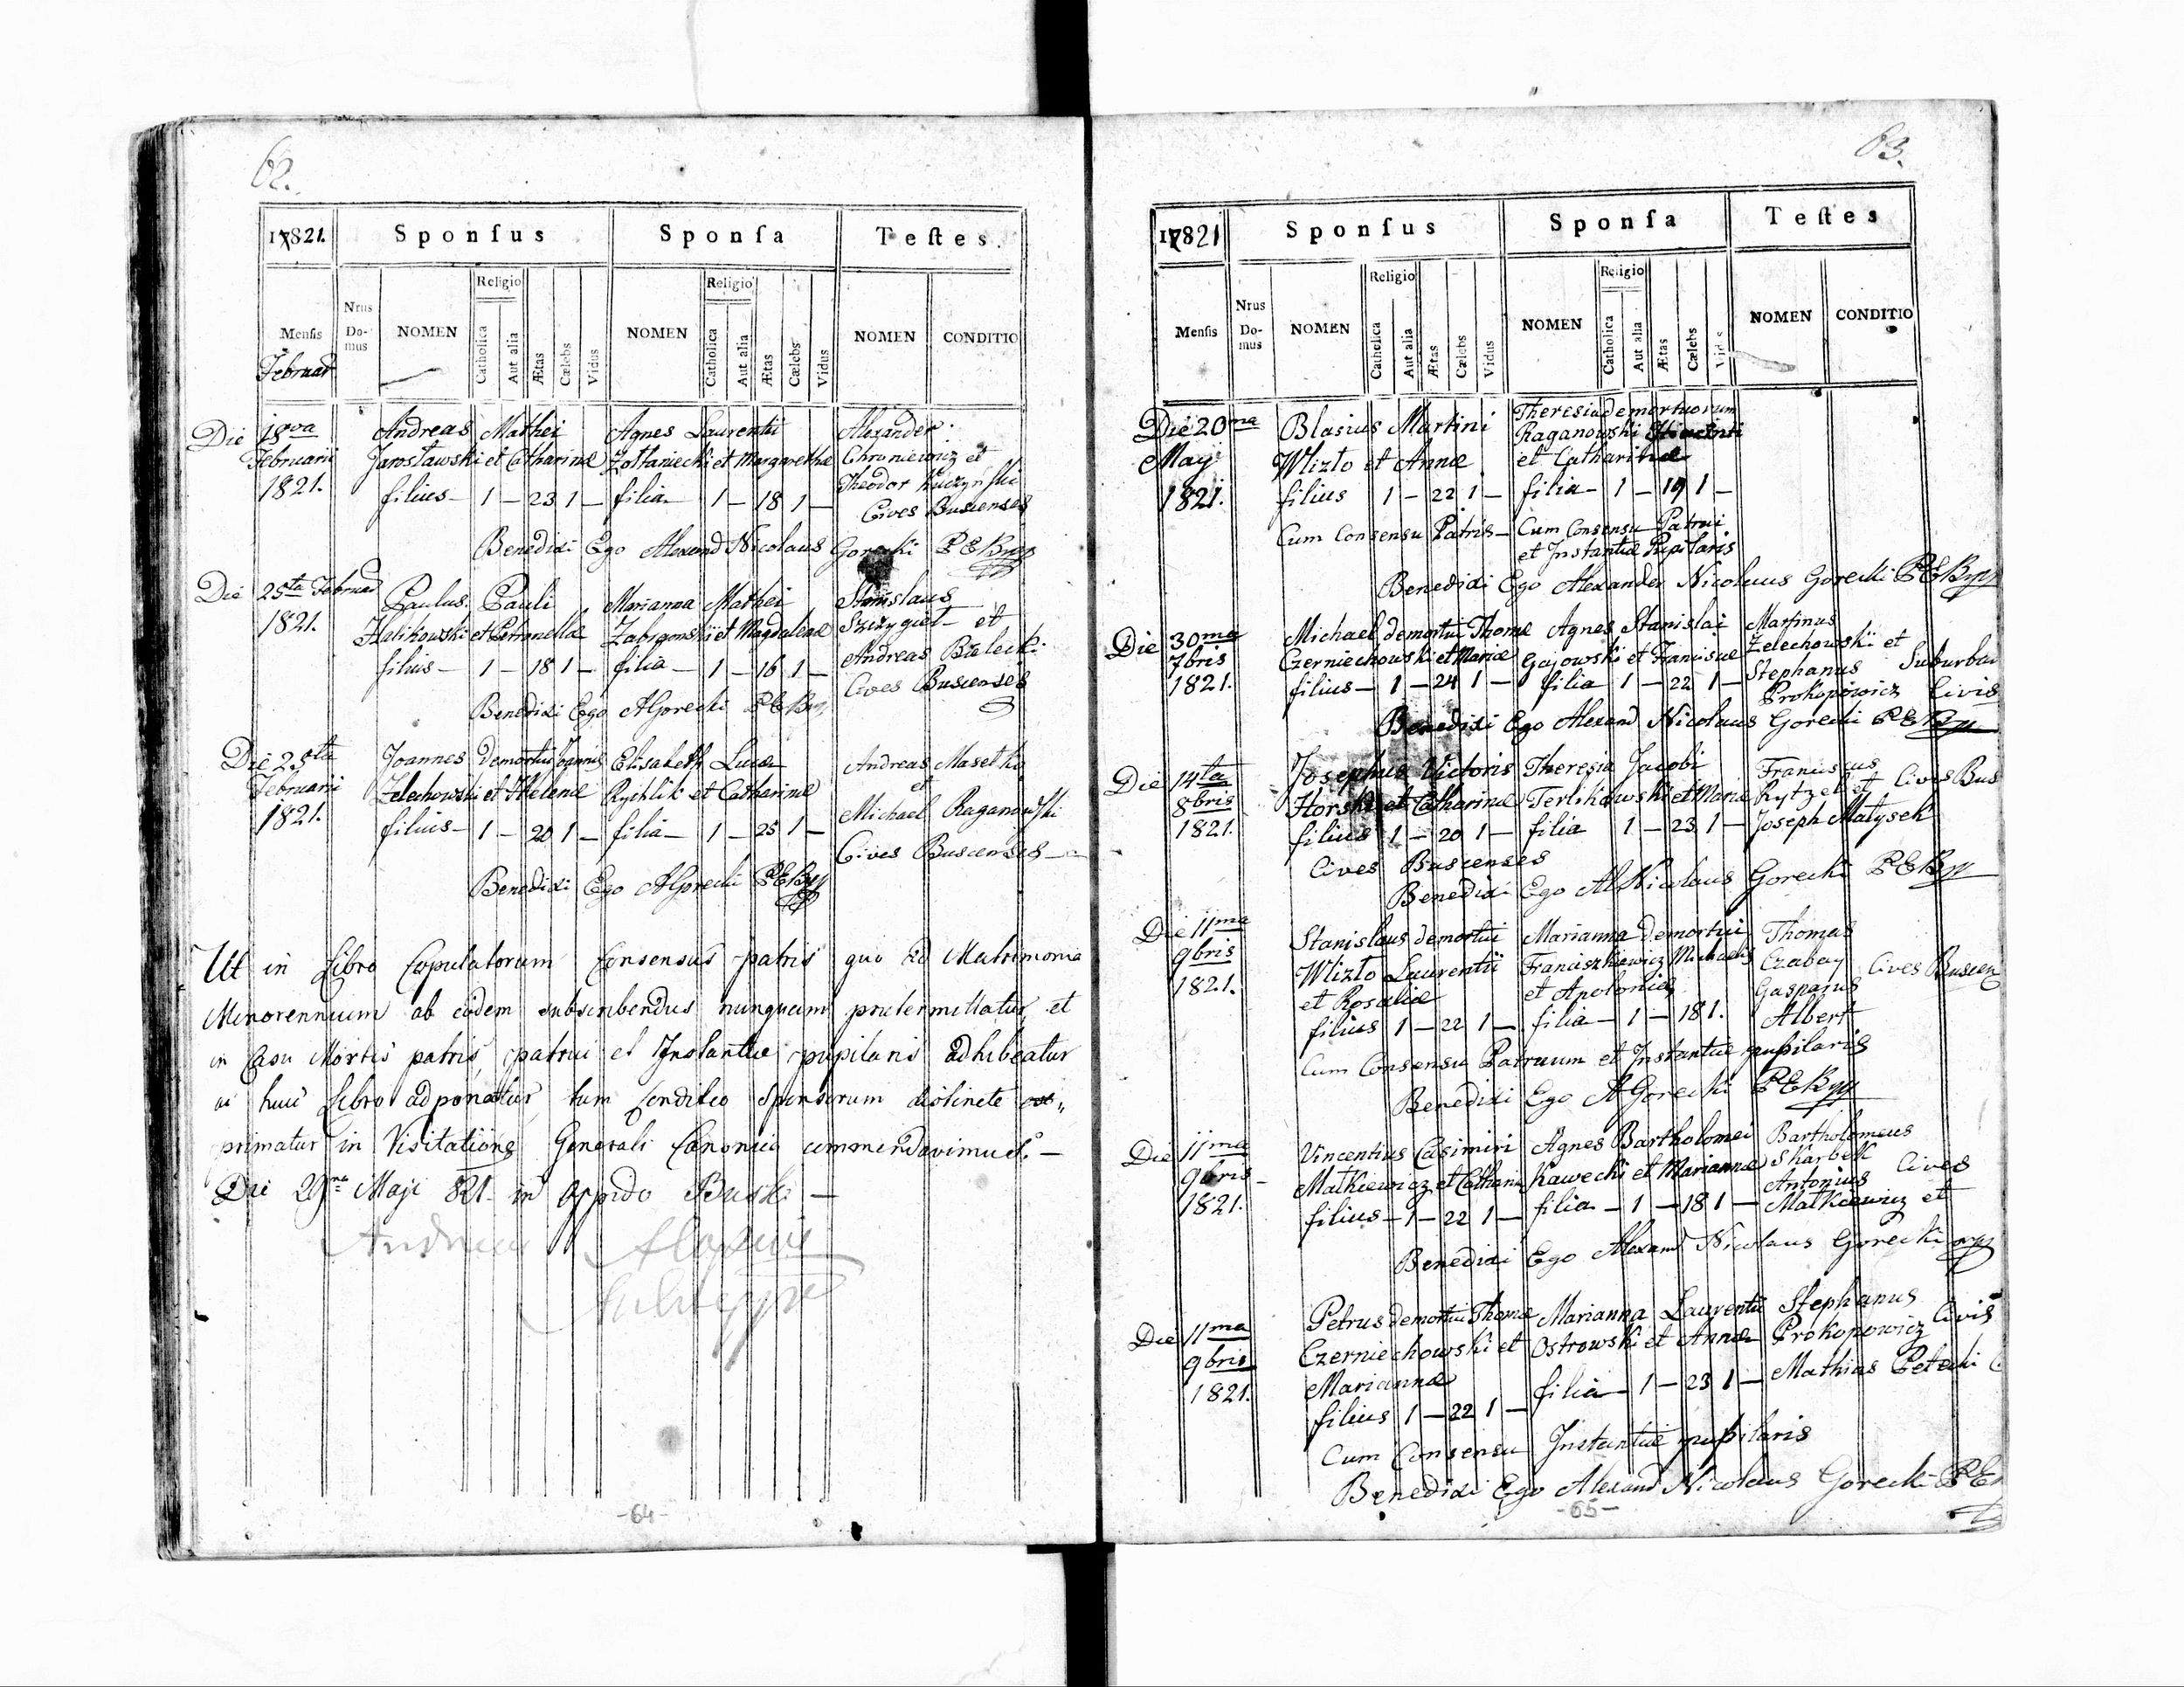 62.
17821. Sponſus Sponſa Teſtes.
Menſis Nrus Do- mus NOMEN Religio Catholica Aut alia Ætas Cælebs Vidus NOMEN Religio Catholica Aut alia Ætas Cælebs Vidus NOMEN CONDITIO
Februar
Die 18va Andreas Mathei Agnes Laurentii Alexander
Februarii Jarosławski et Catharinæ Zołtaniecki et Margarethæ Chroniewicz et
1821. filius – 1 – 23 1 – filia – 1 – 18 1 – Theodor Kuczyński
Cives Buscenses
Benedixi Ego Alexand Nicolaus Gorecki
Die 25ta Februar Paulus Pauli Marianna Mathei Stanislaus
1821. Halikowski et Petronellæ et Magdalenæ Szczygieł et
filius – 1 – 18 1 – filia – 1 – 16 1 – Andreas Bialecki
Cives Buscenses
Benedixi Ego AGorecki
Die 25ta Joannes demortui Joannis Elisabeth Lucæ Andreas Masetko
Februarii Zelechowski et Helenæ Rychlik et Catharinæ et
1821. filius – 1 – 20 1 – filia – 1 – 25 1 – Michael Raganowski
Cives Buscenses
Benedixi Ego AGorecki
Ut in Libro Copulatorum Consensus patris quo ad Matrimonia
Minorennium ab eodem subscribendus nunquam prætermittatur et
in Casu Mortis patris, patrui et Instantiæ pupilaris adhibeatur
ac huic Libro adponatur, tum Conditio Sponsorum distincte ex„
primatur in Visitatione Generali Canonica commendavimus. –
Die 29na Maji 821 in Oppido Busk. –
Andreas Aloysius
-64-
63.
17821 Sponſus Sponſa Teſtes
Menſis Nrus Do- mus NOMEN Religio Catholica Aut alia Ætas Cælebs Vidus NOMEN Religio Catholica Aut alia Ætas Cælebs Vidus NOMEN CONDITIO
Die 20ma Blasius Martini Theresia demortuorum
May Wlizło et Annæ Raganowski
1821. filius 1 – 22 1 – et Catharinæ
filia – 1 – 19 1 –
Cum Consensu Patris – Cum Consensu Patrui
et Instantiæ Pupilaris
Benedixi Ego Alexander Nicolaus Gorecki
Die 30ma Michael demortui Thomæ Agnes Stanislai Martinus
7bris Czerniechowski et Mariæ Gajowski et Franciscæ Zelechowski et
1821. filius – 1 – 24 1 – filia 1 – 22 1 – Stephanus Suburban
Prokopowicz Civis
Benedixi Ego Alexand Nicolaus Gorecki
Die 14ta Josephus Victoris Theresia Jacobi Franciscus
8bris Horski et Catharinæ Terlikowski et Mariæ Rytzel et Cives Bus
1821. filius 1 – 20 1 – filia 1 – 23 1 – Joseph Matysek
Cives Buscenses
Benedixi Ego Al Nicolaus Gorecki
Die 11ma Stanislaus demortui Marianna demortui Thomas
9bris Wlizło Laurentii Franciszkiewicz Michaelis Czabay Cives Buscen
1821. et Rosaliæ et Apoloniæ Gasparus
filius 1 – 22 1 – filia – 1 – 18 1. Albert
Cum Consensu Patruum et Instantiæ pupilaris
Benedixi Ego AGorecki
Die 11ma Vincentius Casimiri Agnes Bartholomei Bartholomeus
9bris – Matkiewicz et Catharin Kawecki et Mariannæ Skarbek Cives
1821. filius – 1 – 22 1 – filia – 1 – 18 1 – Antonius
Matkiewicz et
Benedixi Ego Alexand Nicolaus Gorecki
Die 11ma Petrus demortui Thomæ Marianna Laurentii Stephanus
9bris Czerniechowski et Ostrowski et Annæ Prokopowicz Civis
1821. Mariannæ filia – 1 – 23 1 – Mathias Petecki
filius 1 – 22 1 –
Cum Consensu Instantiæ pupilaris
Benedixi Ego Alexand Nicolaus Gorecki
-65-